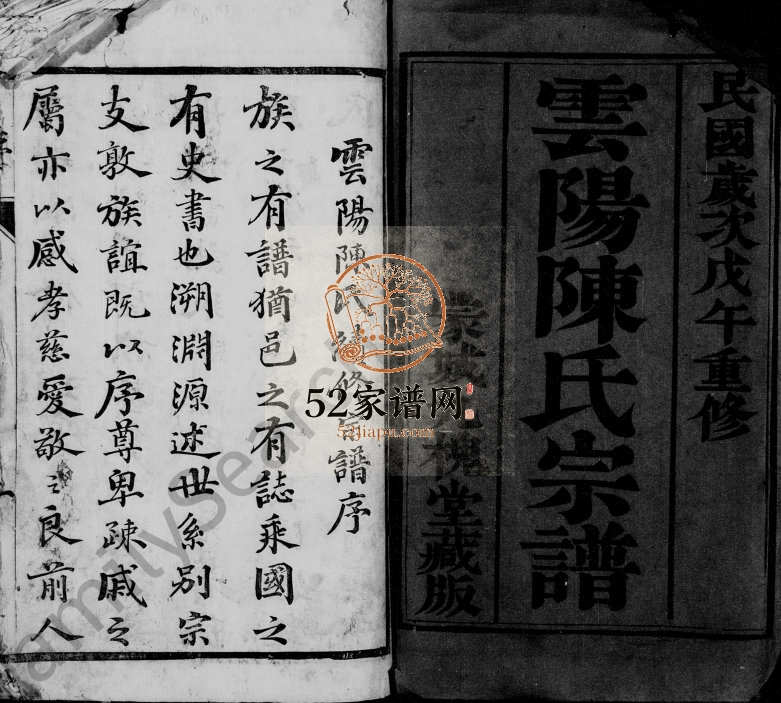 民國歲次戊午重修
雲陽陳氏宗譜
槐堂藏版
雲陽陳氏 修宗譜序
族之有譜猶邑之有誌乘國之
有史書也溯淵源述世系別宗
支敦族誼既以序尊卑疎戚之
屬亦以感孝慈愛敬之良前人
52家谱网
52jiapu.com
FamilySearch